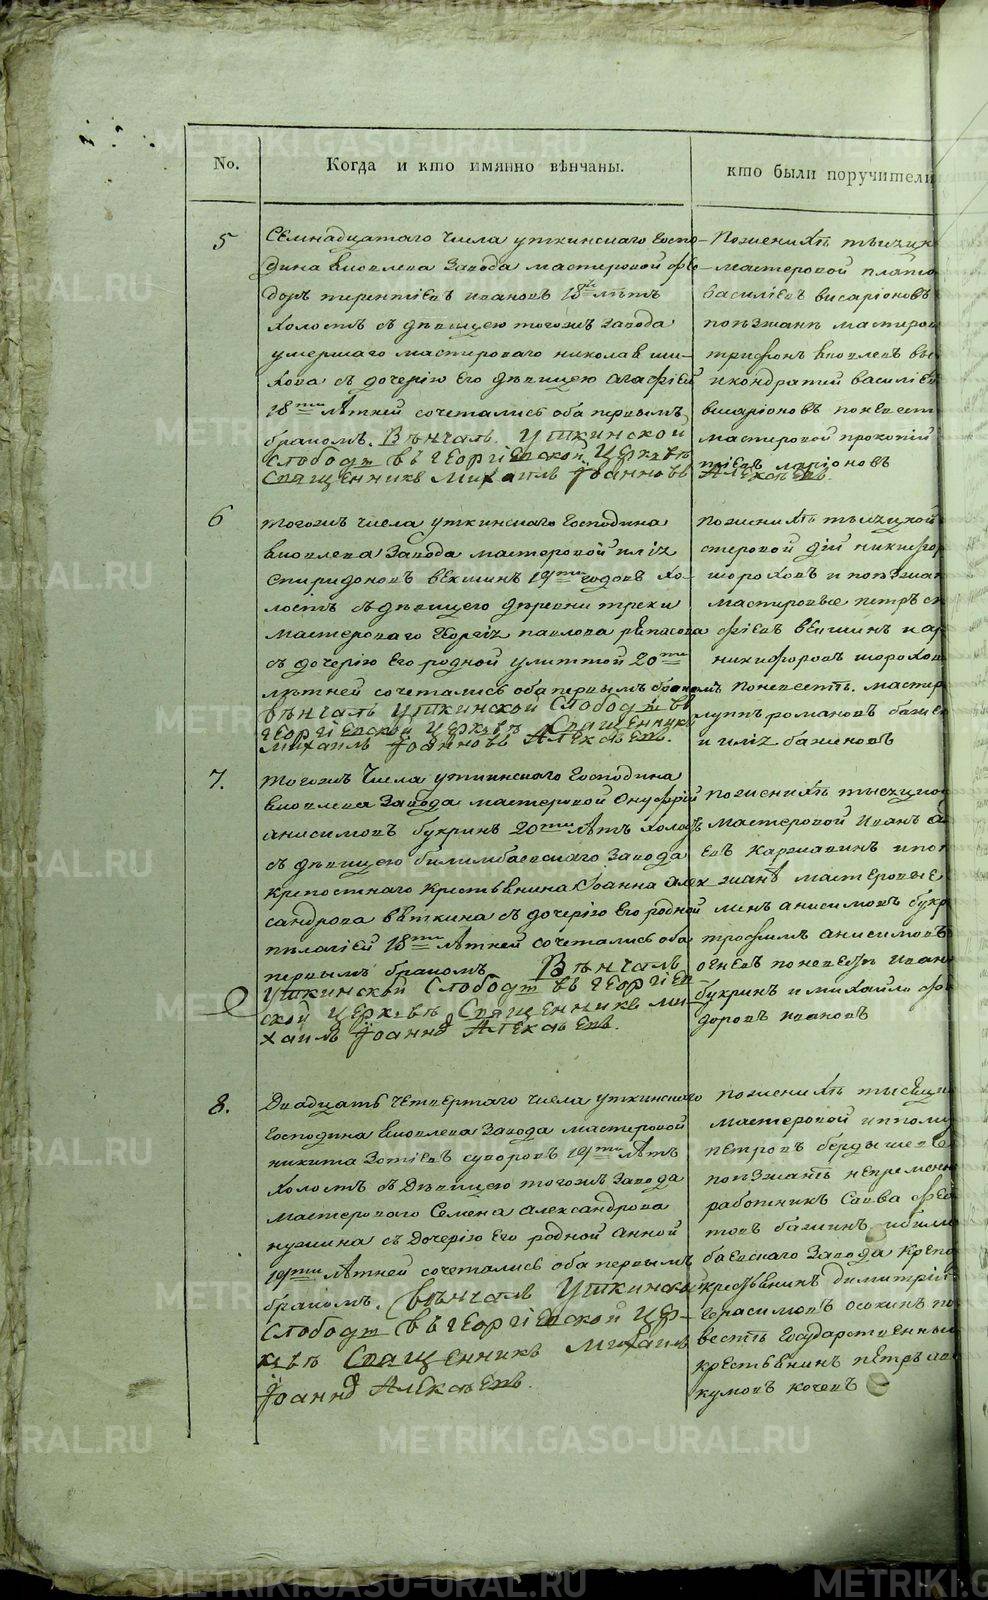 No.
Когда и кто имянно вѣнчаны.
кто были поручители
5
Семнадцатаго числа уткинскаго Госпо-
дина яковлева Завода мастеровой фео-
доръ терентіевъ ивановъ 18 лѣтъ
холостъ съ дѣвицею тогожъ завода
умершаго мастероваго николая
хова съ дочерію Его дѣвицею агафіей
18ти лѣтней сочетались оба первымъ
бракомъ. Вѣнчалъ Уткинской
Слободы въ Георгіевской Церквѣ
Священникъ Михаилъ Іоанновъ Алексѣевъ.
Пожених тысяцк
мастеровой плато
василіевъ висаріоновъ
поѣзжанѣ мастеров
трифонъ яковлевъ
и кондратей василіев
висаріоновъ поневест
мастеровой прокопій
ларіоновъ
6
тогожъ числа уткинскаго Господина
яковлева Завода мастеровой иліа
Спиридоновъ векшинъ 19ти годовъ хо-
лостъ съ дѣвицею деревни треки
мастероваго Георгіа павлова репасова
съ дочерію Его родной улиттой 20ти
лѣтней сочетались оба первымъ бракомъ
вѣнчалъ Уткинской Слободы въ
Георгіевской Церквѣ Священникъ
Михаилъ Іоанновъ Алексѣевъ.
Пожених тысяцкой
стеровой никифор
шороховъ и поѣзжан
мастеровые петръ
фіевъ векшинъ
никифоровъ шорохов
поневестѣ. мастер
романовъ бажен
и иліа баженовъ
7.
тогожъ Числа уткинскаго Господина
яковлева Завода мастеровой Онуфрій
анисимовъ букринъ 20ти лѣтъ холостъ
съ дѣвицею билимбаевскаго Завода
крепостнаго крестьянина Іоанна алек
сандрова вяткина съ дочерію Его родной
пелагіей 18ти лѣтней сочетались оба
первымъ бракомъ Вѣнчалъ
Уткинской Слободы въ Георгіев
ской Церквѣ Священникъ Ми-
хаилъ Іоанновъ Алексѣевъ.
пожених тысяцко
мастеровой Иванъ
евъ каржавинъ ипо
зжанѣ мастеровые
менъ анисимовъ букр
трофимъ анисимовъ
поневестѣ иван
букринъ и михайло фе
доровъ ивановъ
8.
Двадцать четвертаго числа уткинскаго
Господина яковлева Завода мастеровой
никита Зотіевъ суворовъ 19ти лѣтъ
холостъ съ Дѣвицею тогожъ Завода
мастероваго Семена александрова
нужина съ Дочерію Его родной анной
19ти лѣтней сочетались оба первымъ
бракомъ. Вѣнчалъ Уткинской
Слободы въ Георгіевской Цер-
квѣ Священникъ Михаилъ
Іоанновъ Алексѣевъ.
пожених тысяцк
мастеровой ипполи
петровъ бердышевъ
поѣзжанѣ непремен
работникъ Савва
товъ бажинъ ибили
баевскаго Завода крепо
крестьянинъ димитрій
Герасимовъ осокинъ по
вестѣ Государственный
крестьянинъ петръ
кумовъ кочевъ
METRIKI.GASO-URAL.RU